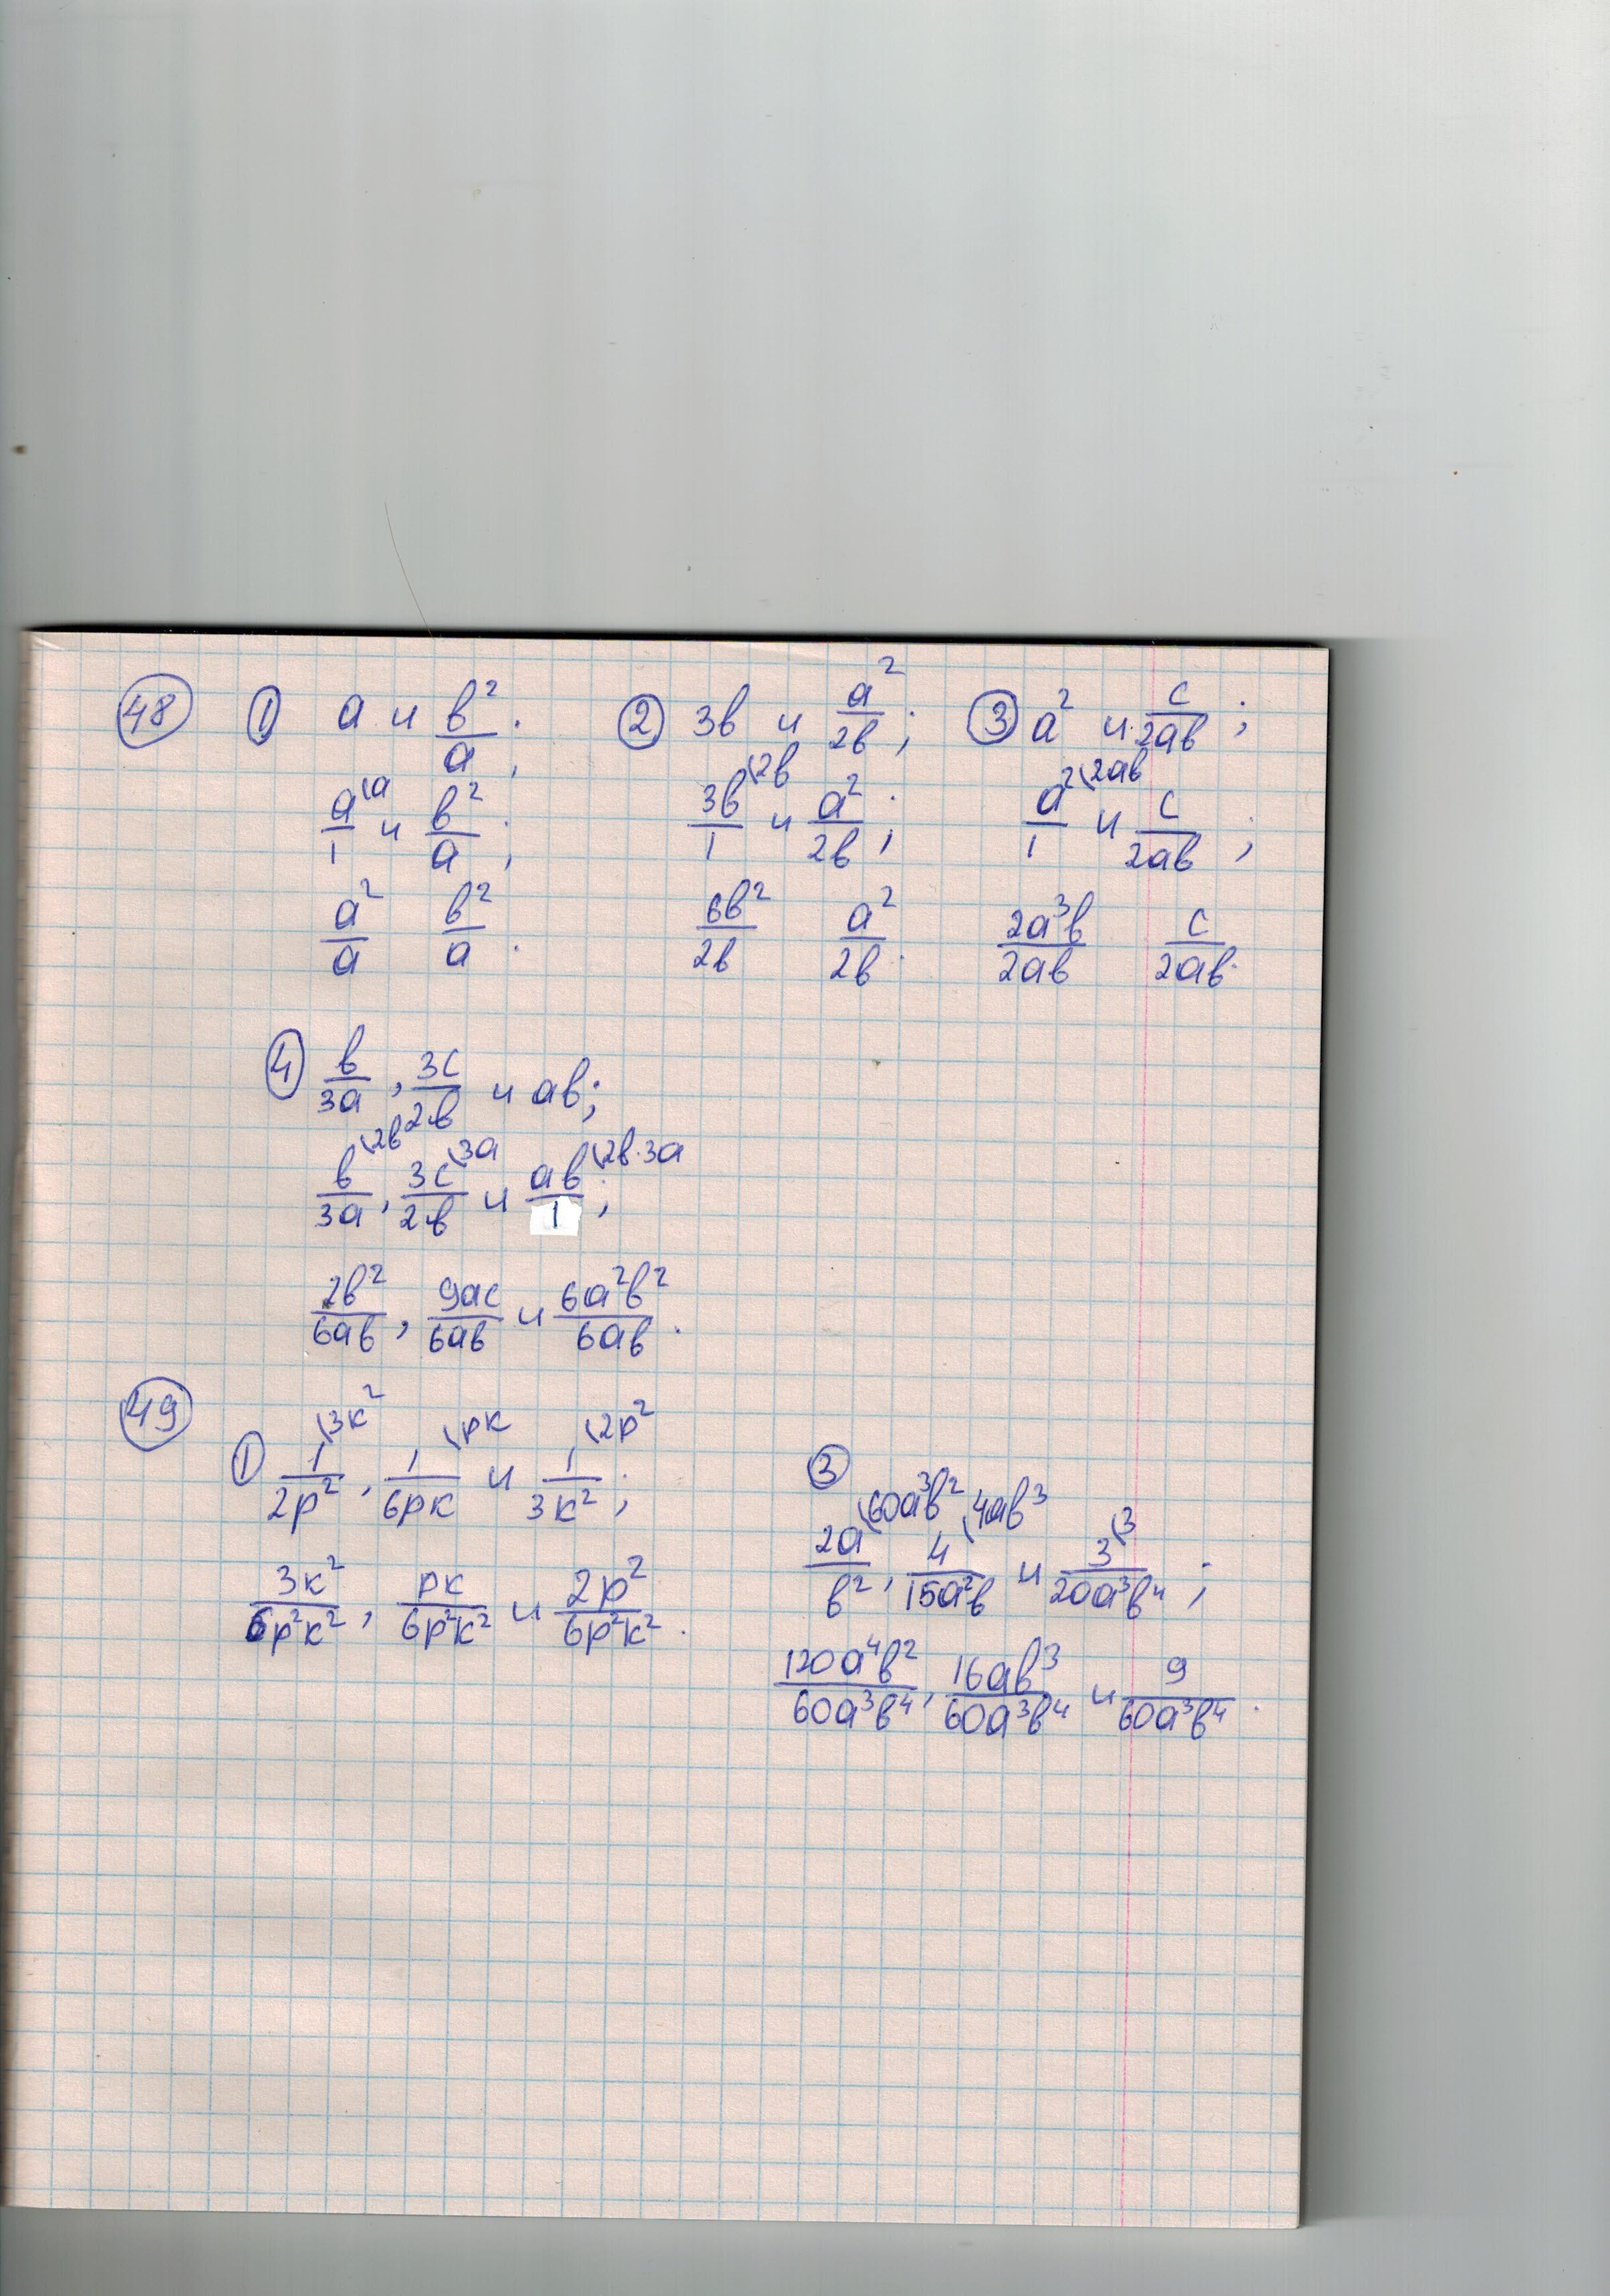 48 1 a и в²/a; 2 3в и a²/2в; 3 a² и c/2aв;
a/1 \a и в²/a; 3в/1 \2в и a²/2в; a²/1 \2aв и c/2aв;
a²/a в²/a. 6в²/2в a²/2в. 2a³в/2aв c/2aв.
4 в/3a, 3c/2в и aв;
в/3a \2в, 3c/2в \3a и aв/1 \2в·3a;
2в²/6aв, 9ac/6aв и 6a²в²/6aв.
49
1 1/2p² \3к², 1/6pк \pк и 1/3к² \2p²;
3к²/6p²к², pк/6p²к² и 2p²/6p²к².
3
2a/в² \60a³в², 4/15a²в \4aв³ и 3/20a³в⁴ \3;
120a⁴в²/60a³в⁴, 16aв³/60a³в⁴ и 9/60a³в⁴.